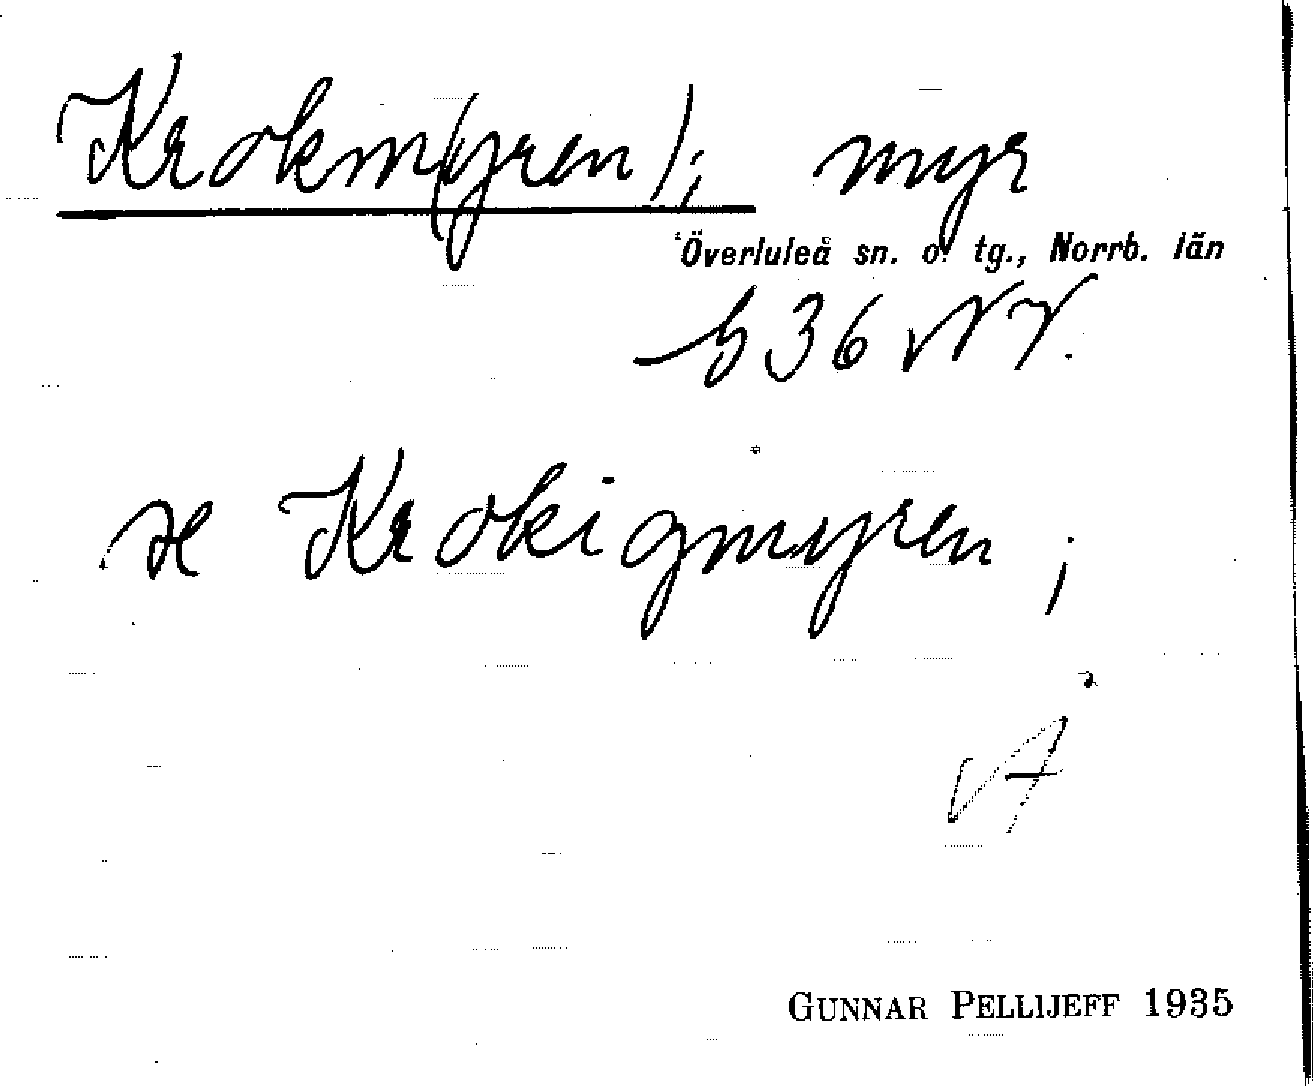 Krokm(yren); myr
Överluleå sn. o. tg., Norrb. län
b 36 NV.
se Krokigmyren ;
GUNNAR PELLIJEFF 1935